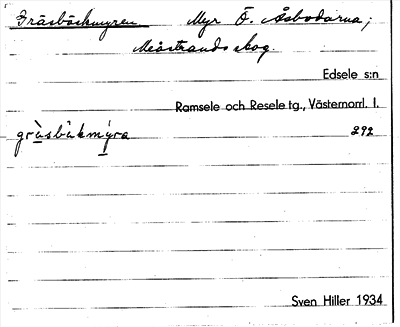 Gräsbäckmyren Myr Ö. Åsbodarna;
Meåstrands skog.
Edsele s:n
Ramsele och Resele tg., Västernorrl. l.
gräsbäkmýra 292
Sven Hiller 1934